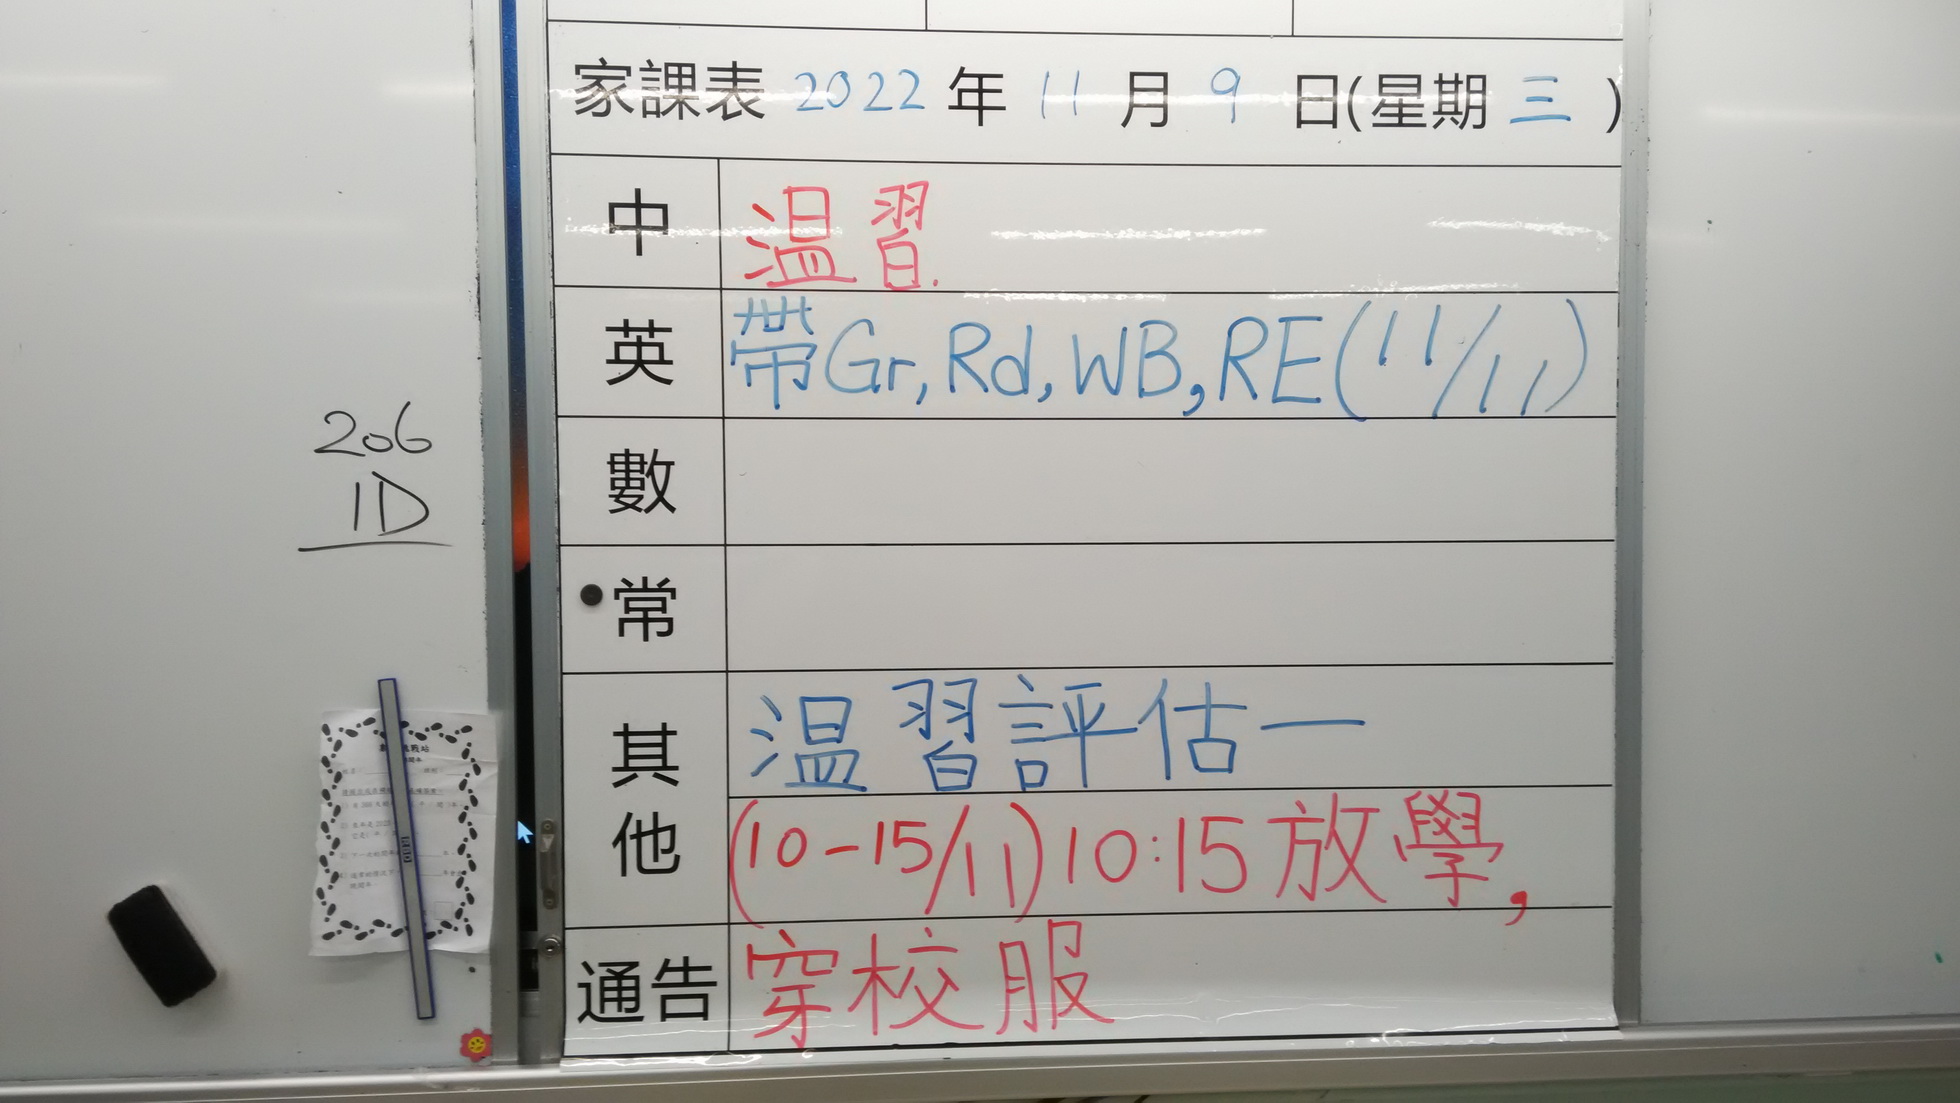 家課表 2022 年 11 月 9 日(星期 三 )
中 温習.
英 帶Gr, Rd, WB, RE(11/11)
數
常
其他 温習評估一
(10-15/11)10:15放學,
通告 穿校服
206
1D